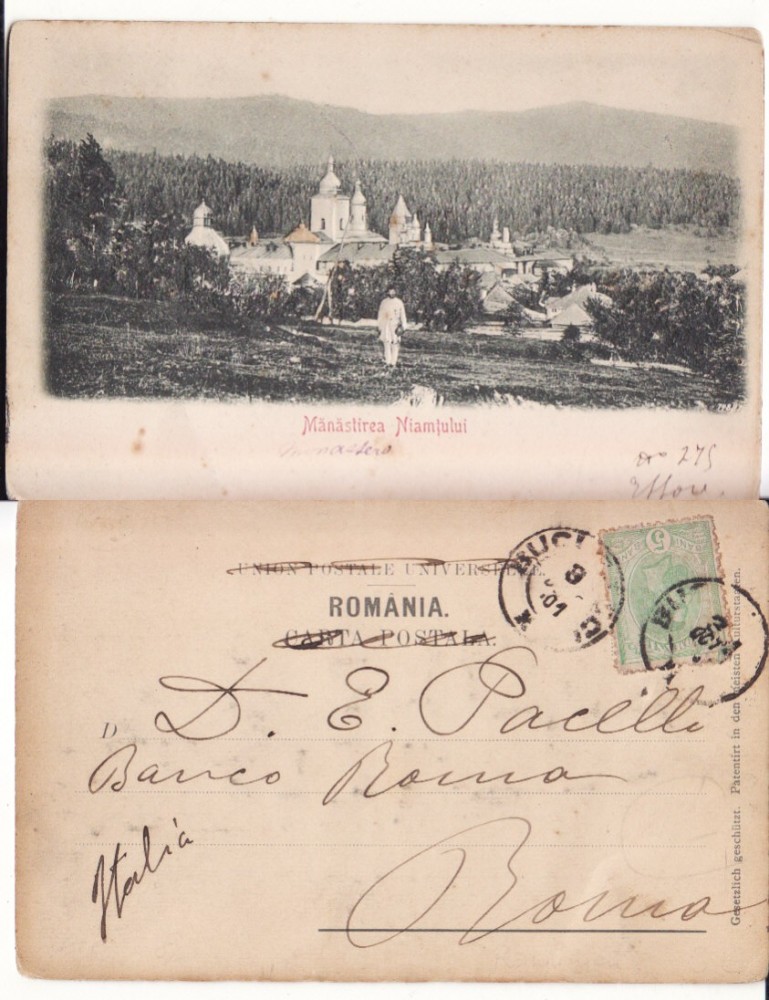 Mănăstirea Niamţului
monastero
no 275
Ettore.
UNION POSTALE UNIVERSELLE.
ROMÂNIA.
CARTA POSTALA.
D. E. Pacelli
Banco Roma
Italia
Roma
Gesetzlich geschützt. Patentirt in den meisten Kulturstaaten.
BUCU
5